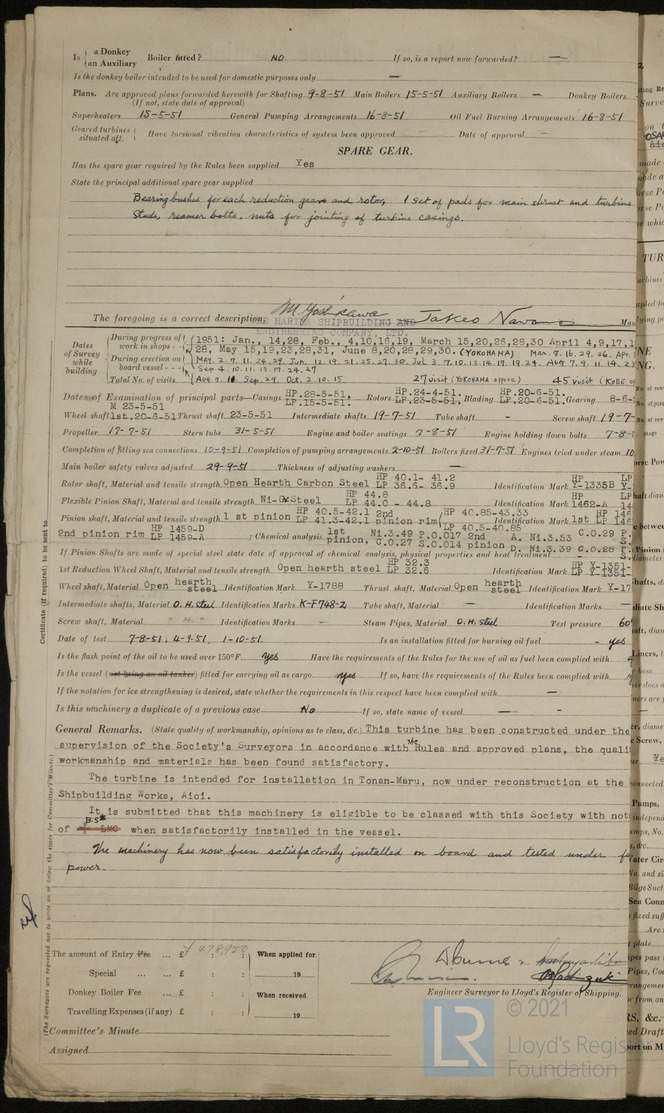 Is { a Donkey / an Auxiliary } Boiler fitted? NO If so, is a report now forwarded? —
Is the donkey boiler intended to be used for domestic purposes only —
Plans. Are approved plans forwarded herewith for Shafting 9-8-51 Main Boilers 15-5-51 Auxiliary Boilers — Donkey Boilers
(If not, state date of approval)
Superheaters 15-5-51 General Pumping Arrangements 16-8-51 Oil Fuel Burning Arrangements 16-8-51
Geared turbines situated aft. } Have torsional vibration characteristics of system been approved — Date of approval —
SPARE GEAR.
Has the spare gear required by the Rules been supplied Yes
State the principal additional spare gear supplied
Bearing bushes for each reduction gears and rotor, 1 set of pads for main thrust and turbine
Studs, reamer bolts, nuts for jointing of turbine casings.
The foregoing is a correct description,
HARIMA SHIPBUILDING AND
ENGINEERING COMPANY, LTD.
Dates of Survey while building
During progress of work in shops - - { 1951: Jan., 14,28, Feb., 4,10,16,19, March 15,20,26,28,30 April 4,9,17,1
28, May 15,19,23,28,31, June 8,20,28,29,30. (YOKOHAMA) Mar. 8. 16. 29. 26. Apr.
During erection on board vessel - - - { May. 2. 7. 11.
Sep 4. 10. 11. 13. 17. 24. 27
Total No. of visits Oct. 2. 10. 15 27 visit (YOKOHAMA office) 45 visit (KOBE o
Dates of Examination of principal parts—Casings HP.28-5-51. LP.15-5-51. Rotors HP.24-4-51. LP.23-5-51. Blading HP.20-6-51. LP.20-6-51. Gearing 8-6-
M 23-5-51
Wheel shaft 1st.20-6-51 Thrust shaft 23-5-51 Intermediate shafts 19-7-51 Tube shaft - Screw shaft 19-7-
Propeller 17-7-51 Stern tube 31-5-51 Engine and boiler seatings 7-8-51 Engine holding down bolts 7-8-
Completion of fitting sea connections 10-9-51 Completion of pumping arrangements 2-10-51 Boilers fixed 31-7-51 Engines tried under steam 10
Main boiler safety valves adjusted 29-9-51 Thickness of adjusting washers —
Rotor shaft, Material and tensile strength Open Hearth Carbon Steel HP 40.1- 41.2 LP 36.6- 36.9 Identification Mark HP Y-1335B LP Y-
Flexible Pinion Shaft, Material and tensile strength Ni-Cr Steel HP 44.8 LP 44.0 - 44.8 Identification Mark HP 1462-A LP 14
Pinion shaft, Material and tensile strength 1 st pinion HP 40.5-42.1 LP 41.3-42.1 2nd pinion rim HP 40.85-43.33 LP 40.5-40.85 Identification Mark 1st HP 146 LP 146
2nd pinion rim HP 1459-D LP 1459-A ; Chemical analysis 1st pinion, Ni.3.49 P.0.017 C.0.27 S.0.014 2nd pinion A. Ni.3.53 C.0.29 P. D. Ni.3.39 C.0.28 P.
If Pinion Shafts are made of special steel state date of approval of chemical analysis, physical properties and heat treatment
1st Reduction Wheel Shaft, Material and tensile strength Open hearth steel HP 32.3 LP 32.6 Identification Mark HP Y-1351- LP Y-1351-
Wheel shaft, Material Open hearth steel Identification Mark Y-1788 Thrust shaft, Material Open hearth steel Identification Mark Y-17
Intermediate shafts, Material O.H. steel Identification Marks K-F748-2 Tube shaft, Material — Identification Marks —
Screw shaft, Material " " Identification Marks - Steam Pipes, Material O.H. steel Test pressure 60
Date of test 7-8-51, 4-9-51, 1-10-51. Is an installation fitted for burning oil fuel - yes
Is the flash point of the oil to be used over 150°F. Yes Have the requirements of the Rules for the use of oil as fuel been complied with
Is the vessel (not being an oil tanker) fitted for carrying oil as cargo yes If so, have the requirements of the Rules been complied with
If the notation for ice strengthening is desired, state whether the requirements in this respect have been complied with —
Is this machinery a duplicate of a previous case No If so, state name of vessel —
General Remarks. (State quality of workmanship, opinions as to class, &c.) This turbine has been constructed under the
supervision of the Society's Surveyors in accordance with the Rules and approved plans, the quali
workmanship and materials has been found satisfactory.
The turbine is intended for installation in Tonan-Maru, now under reconstruction at the
Shipbuilding Works, Aioi.
It is submitted that this machinery is eligible to be classed with this Society with not
B.S*
of + LMC when satisfactorily installed in the vessel.
The machinery has now been satisfactorily installed on board and tested under
power.
The amount of Entry Fee ... £ 478,950 : : When applied for
Special ... ... £ : : 19
Donkey Boiler Fee ... £ : : When received
Travelling Expenses (if any) £ : : 19
Engineer Surveyor to Lloyd's Register of Shipping.
Committee's Minute
Assigned
Certificate (if required) to be sent to
(The Surveyors are requested not to write on or below the space for Committee's Minute.)
LR © 2021
Lloyd's Regis
Foundation